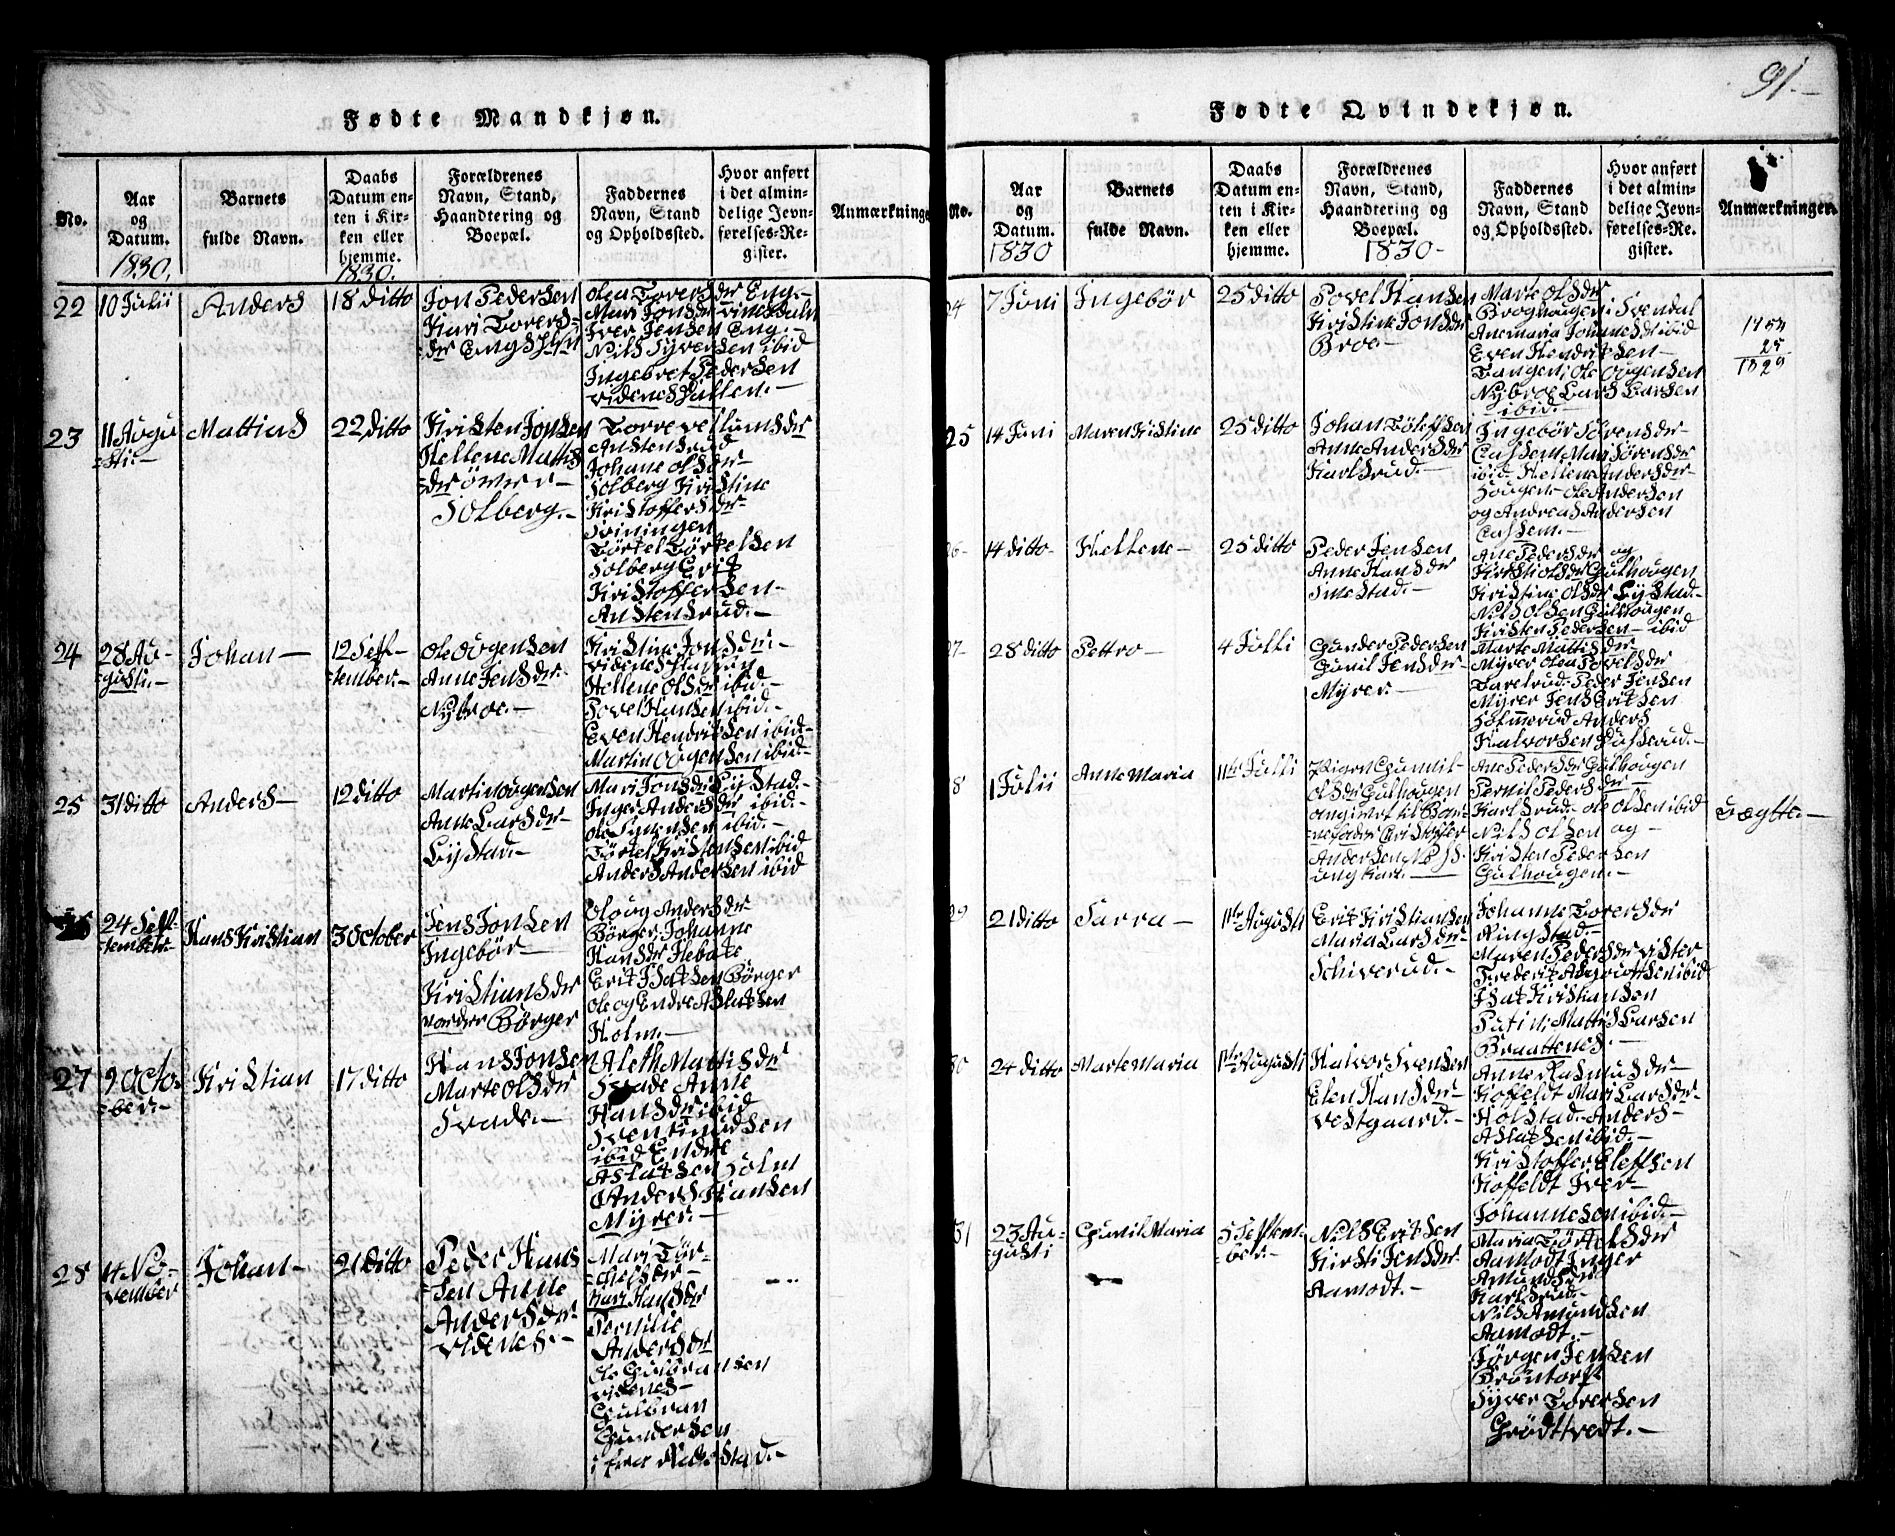 91.-
Fødte Mandkjøn.
No.
Aar
og
Datum.
1830.
Barnets
fulde Navn.
Daabs
Datum en-
ten i Kir-
ken eller
hjemme.
1830.
Forældrenes
Navn, Stand,
Haandtering og
Boepæl.
Faddernes
Navn, Stand
og Opholdssted.
Hvor anført
i det almin-
delige Jevn-
førelses-Re-
gister.
Anmærkninge
22
10 Julii
Anders
18 ditto
Jon Pedersen
Kari Torers-
der
Olea Torersder Eng-
Mari Jonsder
Iver Jensen Eng.-
Nils Syversen ibid
Ingebret Pedersen
23
11 Augu
sti.-
Mattias
22 ditto
Kristen Jonsen
Hellene Mattis
der
Solberg.-
Anstensrud
Johane Olsder-
Solberg Kristine
Kristoffersder-
Tørtel Tørtelsen
Solberg Erik
Kristoffersen-
Anstensrud.-
24
28 Au-
gusti.-
Johan-
12 Sept-
tember.-
Ole Ougensen
Anne Jensder-
Nybroe.-
Kristine Jonsder.-
Hellene Olsder ibid.-
Povel Hansen ibid.-
Even Hendriksen ibid-
Martin Ougensen ibid-
25
31 ditto
Anders-
12 ditto
Martin Ougensen
Anne Larsder-
Lystad.-
Mari Jonsder Lystad.-
Inger Andersder ibid.-
Ole Simensen ibid.-
Tørtel Kristensen ibid
Anders Andersen ibid
26
24 Sep-
tember
Hans Kristian
3 October
Jens Jonsen
Ingebør-
Kristiansder
Børger
Oloug Andersder-
Børger. Johanne
Hansder
Erik Isaksen Børger
Ole og Endre Aslaksen
Holm.-
27
9 Octo-
ber.-
Kristian
17 ditto
Hans Jonsen
Marte Olsder
Svade.-
Aleth Mattisder
Svade Anne
Hansder ibid
Sven
ibid Endre
Aslaksen Holm
Anders Hansen
Myrer.-
28
14 No-
vember
Johan-
21 ditto
Peder Hans
sen Anne
Andersder-
Videnes.-
Mari Tør-
Kari Hansder
Pernille
Andersder
Ole Gulbransen
Videnes-
Gulbran
Gundersen
Fødte Qvindekjøn.
No.
Aar
og
Datum.
1830
Barnets
fulde Navn.
Daabs
Datum en-
ten i Kir-
ken eller
hjemme.
Forældrenes
Navn, Stand,
Haandtering og
Boepæl.
1830-
Faddernes
Navn, Stand
og Opholdssted.
Hvor anført
i det almin-
delige Jevn-
førelses-Re-
gister.
Anmærkninger.
24
7 Juni
Ingebør
25 ditto
Povel Hansen
Kristine Jonsder
Broe-
Marte Olsder
Anemaria Johanesder ibid
Even Hendriksen-
Tangen, Ole Ougensen
Nybroe Lars Larsen
ibid.-
25
1829
25
14 Juni
Maren Kistine
25 ditto
Anne Andersder
Karlsrud.-
Ingebør Sørensder-
Mari Sørensder
ibid- Hellene Andersder-
Hougen- Ole Andersen
og Andreas Andersen
26-
14 ditto-
Hellene-
25 ditto
Peder Jensen
Anne Hansder
Ane Pedersder og
Kirsti Olsder Gulhougen
Kristine Olsder Lystad.-
Nils Olsen Gulhougen
Kristen Pedersen- ibid
27-
28 ditto
Pettro-
4 Julli
Gunder Pedersen
Gunil Jensder-
Myrer.-
Marte Mattisder-
Myrer Olea Povelsder
Peder Jensen
Myrer Jens Eriksen
Anders
Halvorsen
8
1 Julii
Anne Maria
11te Julli
Pigen Gunnil
Olsder Gulhougen
angivet til Bar-
nefader Cristoffer
Andersen
ung Karl.-
Ane Pedersder Gulhougen
Pernil Pedersder-
Karlsrud- Ole Olsen ibid
Nils Olsen og-
Kristen Pedersen
Gulhougen.-
Uægtte.-
29
21 ditto
Sarra-
1te Augusti
Erik Kristiansen
Maria Larsder-
Schiverud.-
Johanne Torersder
Ringstad-
Maren Pedersder
Isak Kristiansen
Mattis Larsen
Braattenes.-
30
24 ditto
Marte Maria
1te Augusti
Halvor Svensen
Elen Hansder-
Vestgaard.-
Anne Rasmusder-
Koffeldt Mari Larsder-
Holstad- Anders-
Aslaksen ibid.-
Kristoffer Eleffsen
Koffeldt Iver-
Johannesen ibid.-
31
23 Au-
gusti
Gunil Maria
5 Septem-
ber.-
Nils Eriksen
Kirsti Jensder-
Aamodt.-
Maria Tørkelsder
Aamodt Inger
Amundsder
Karlsrud.-
Nils Amundsen
Aamodt.-
Jørgen Jensen
Syver Torersen
Grødttvedt.-